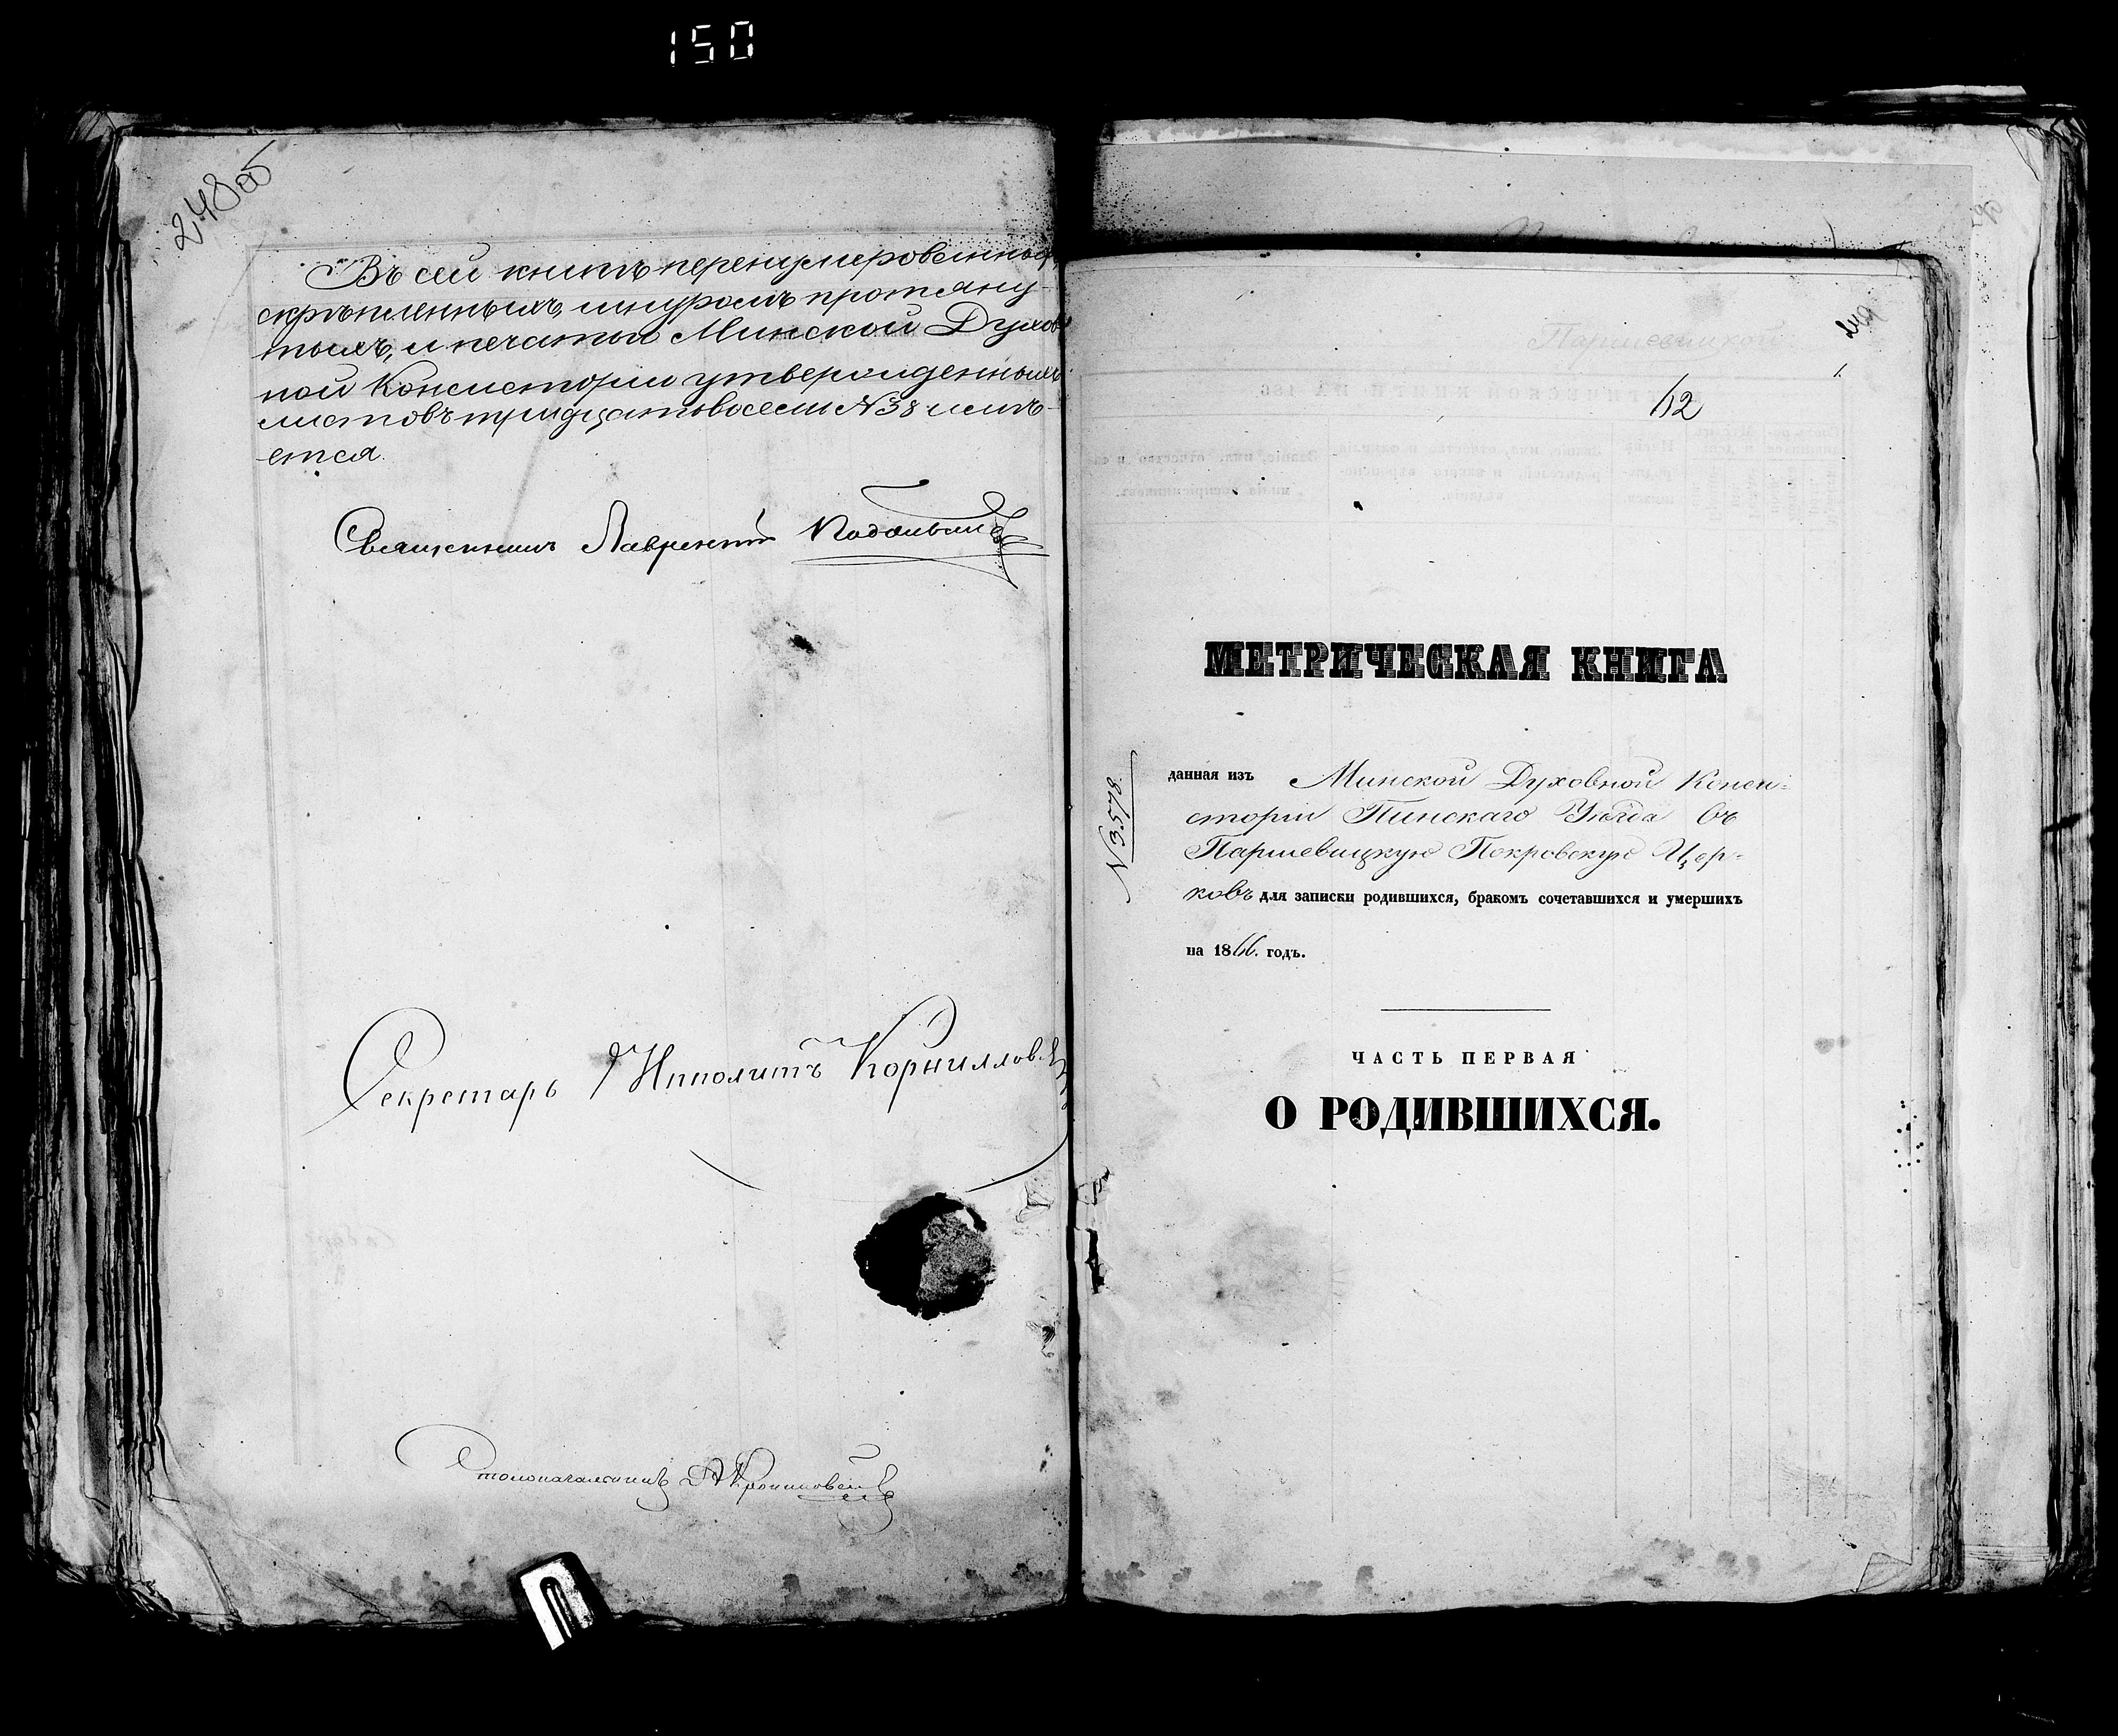 150
248об
Въ сей книгѣ перенумерованныхъ,
скрѣпленныхъ, шнуромъ протяну-
тыхъ, и печатью Минской Духов
ной Консисторіи утвержденныхъ
листовъ тридцать восемь № 38 имѣ-
ется.
Священникъ Лаврентій
Секретарь Ипполитъ Корнилловъ
Столоначальникъ
249
1.
62
МЕТРИЧЕСКАЯ КНИГА
№ 3578.
данная изъ Минской Духовной Конси-
сторіи Пинскаго Уѣзда въ
Паршевицкую Покровскую Цер-
ковь для записки родившихся, бракомъ сочетавшихся и умершихъ
на 1866. годъ.
ЧАСТЬ ПЕРВАЯ
О РОДИВШИХСЯ.